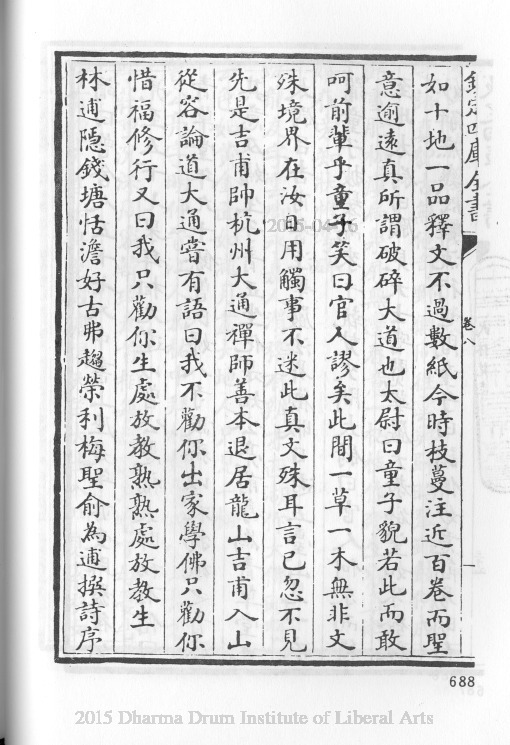 欽定四庫全書
卷八
如十地一品釋文不過數紙今時枝蔓注近百卷而聖
意逾遠真所謂破碎大道也太尉曰童子貌若此而敢
呵前輩乎童子笑曰官人謬矣此間一草一木無非文
殊境界在汝日用觸事不迷此真文殊耳言已忽不見
先是吉甫帥杭州大通禪師善本退居龍山吉甫入山
從容論道大通嘗有語曰我不勸你出家學佛只勸你
惜福修行又曰我只勸你生處放教熟熟處放教生
林逋隱錢塘恬澹好古弗趨榮利梅聖俞為逋撰詩序
688
2015 Dharma Drum Institute of Liberal Arts